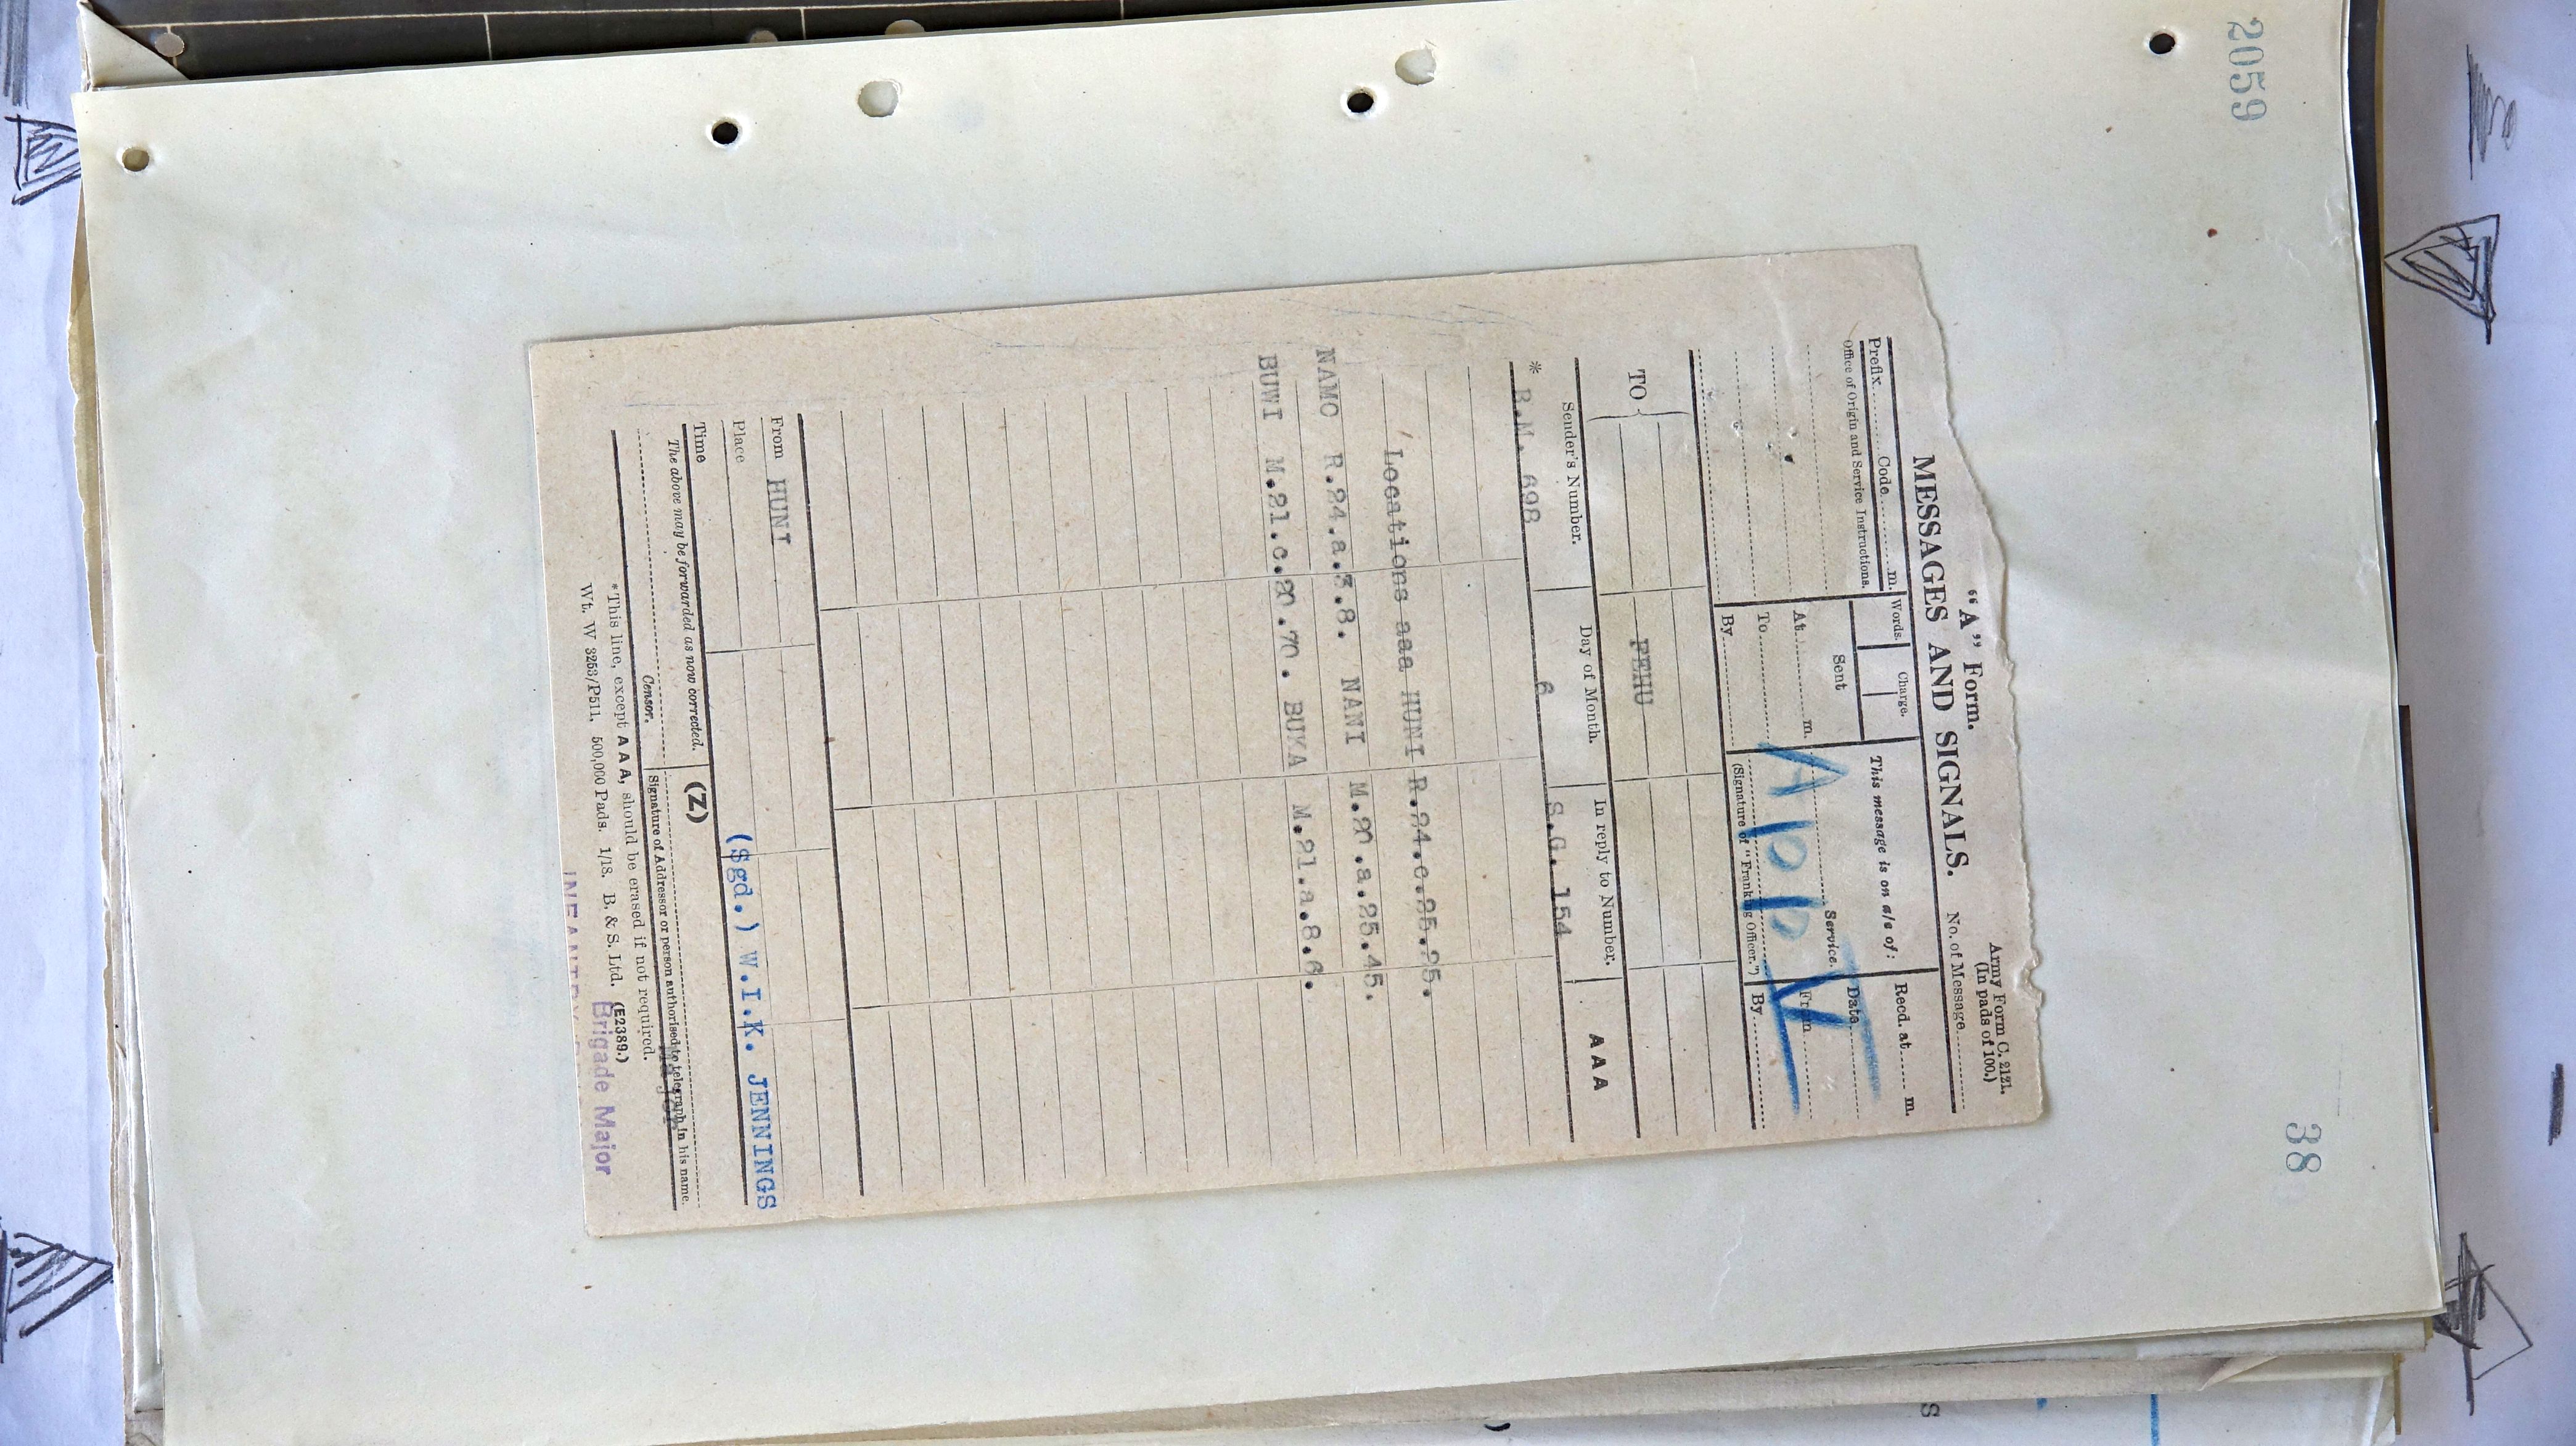 2059
38
"A" Form.
Army Form C. 2121.
(In pads of 100.)
MESSAGES AND SIGNALS.
No. of Message
Prefix Code m.
Words.
Charge.
This message is on a/c of:
Recd. at m.
Office of Origin and Service Instructions.
Sent
Service.
Date
At m.
From
To
By
(Signature of "Franking Officer.")
By
TO
PEHU
Sender's Number.
Day of Month.
In reply to Number.
AAA
* B.M. 698
6
S.G. 154
Locations aaa HUNI R.24.c.25.25.
NAMO R.24.a.3.8. NANI M.20.a.25.45.
BUWI M.21.c.20.70. BUKA M.21.a.8.6.
From HUNI
Place
Time
(Sgd.) W.I.K. JENNINGS
The above may be forwarded as now corrected.
(Z)
Censor.
Signature of Addressor or person authorised to telegraph in his name.
Major
*This line, except AAA, should be erased if not required.
Wt. W 3253/P511. 500,000 Pads. 1/18. B. & S. Ltd. (E2389.)
Brigade Major